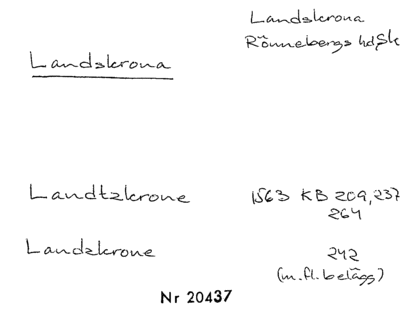 Landskrona
Rönnebergs hd, Sk
Landskrona
Landtzkrone 1563 KB 209, 237
264
Landzkrone 242
(m. fl. belägg)
Nr 20437